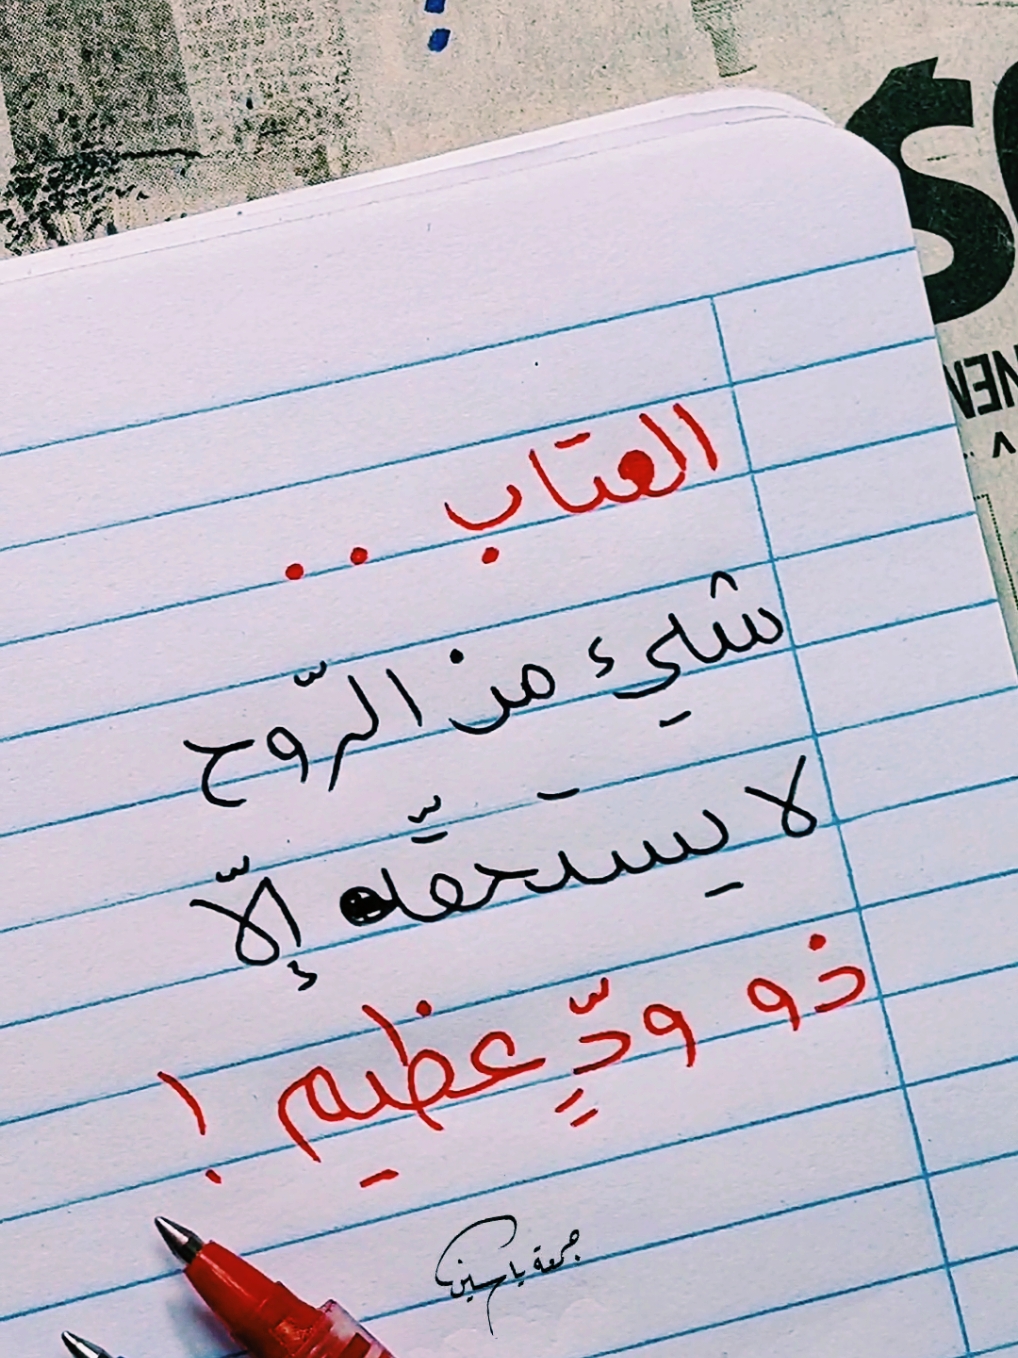 العتاب ..
شيئ من الرّوح
لا يستحقّه إلّا
ذو ودٍّ عظيم !
جمعة ياسين